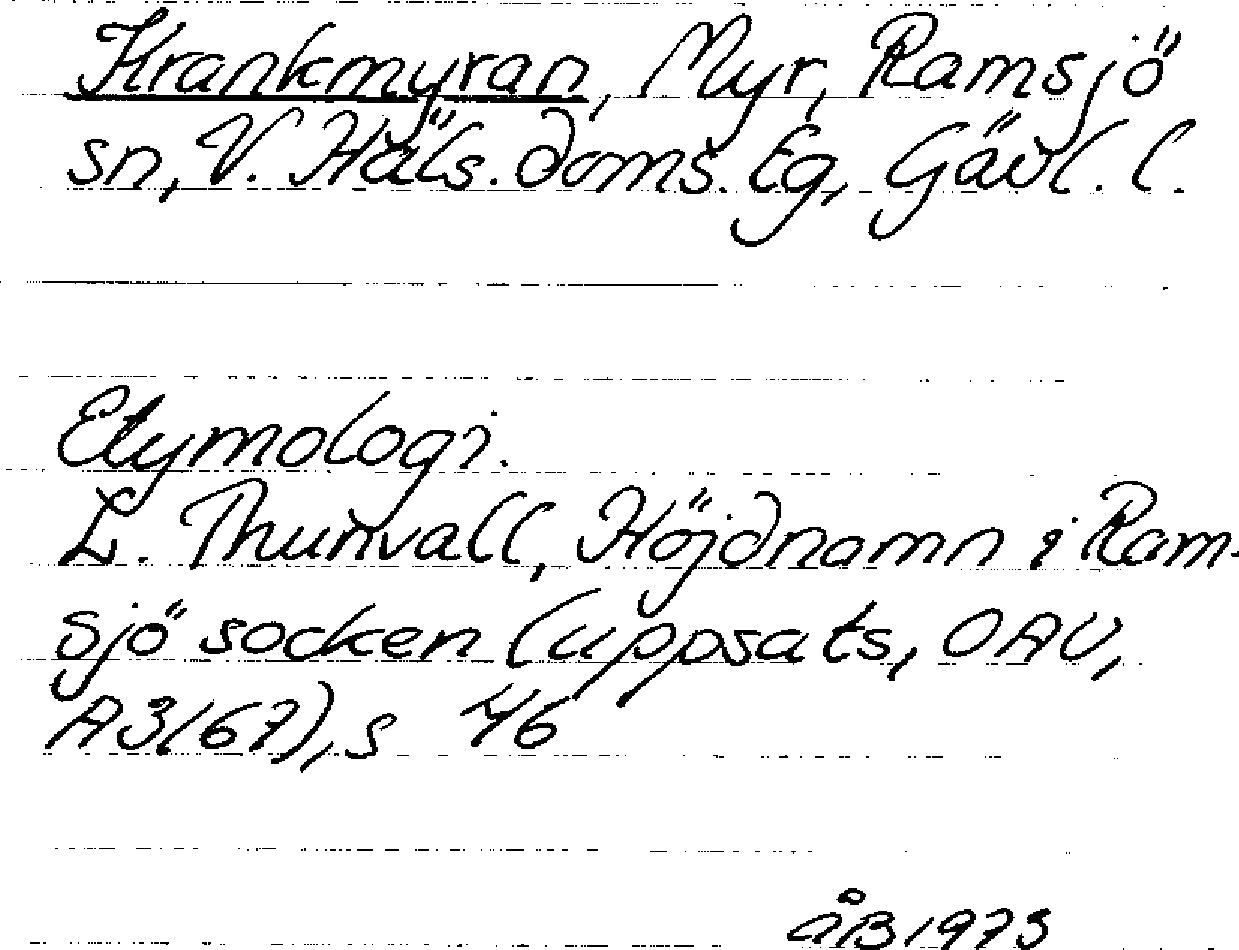 Krankmyran, Myr, Ramsjö
sn, V. Häls. doms. tg, Gävl. l.
Etymologi.
L. Thunvall, Höjdnamn i Ram-
sjö socken (uppsats, OAU,
A3/67), s 46
ÅB 1973